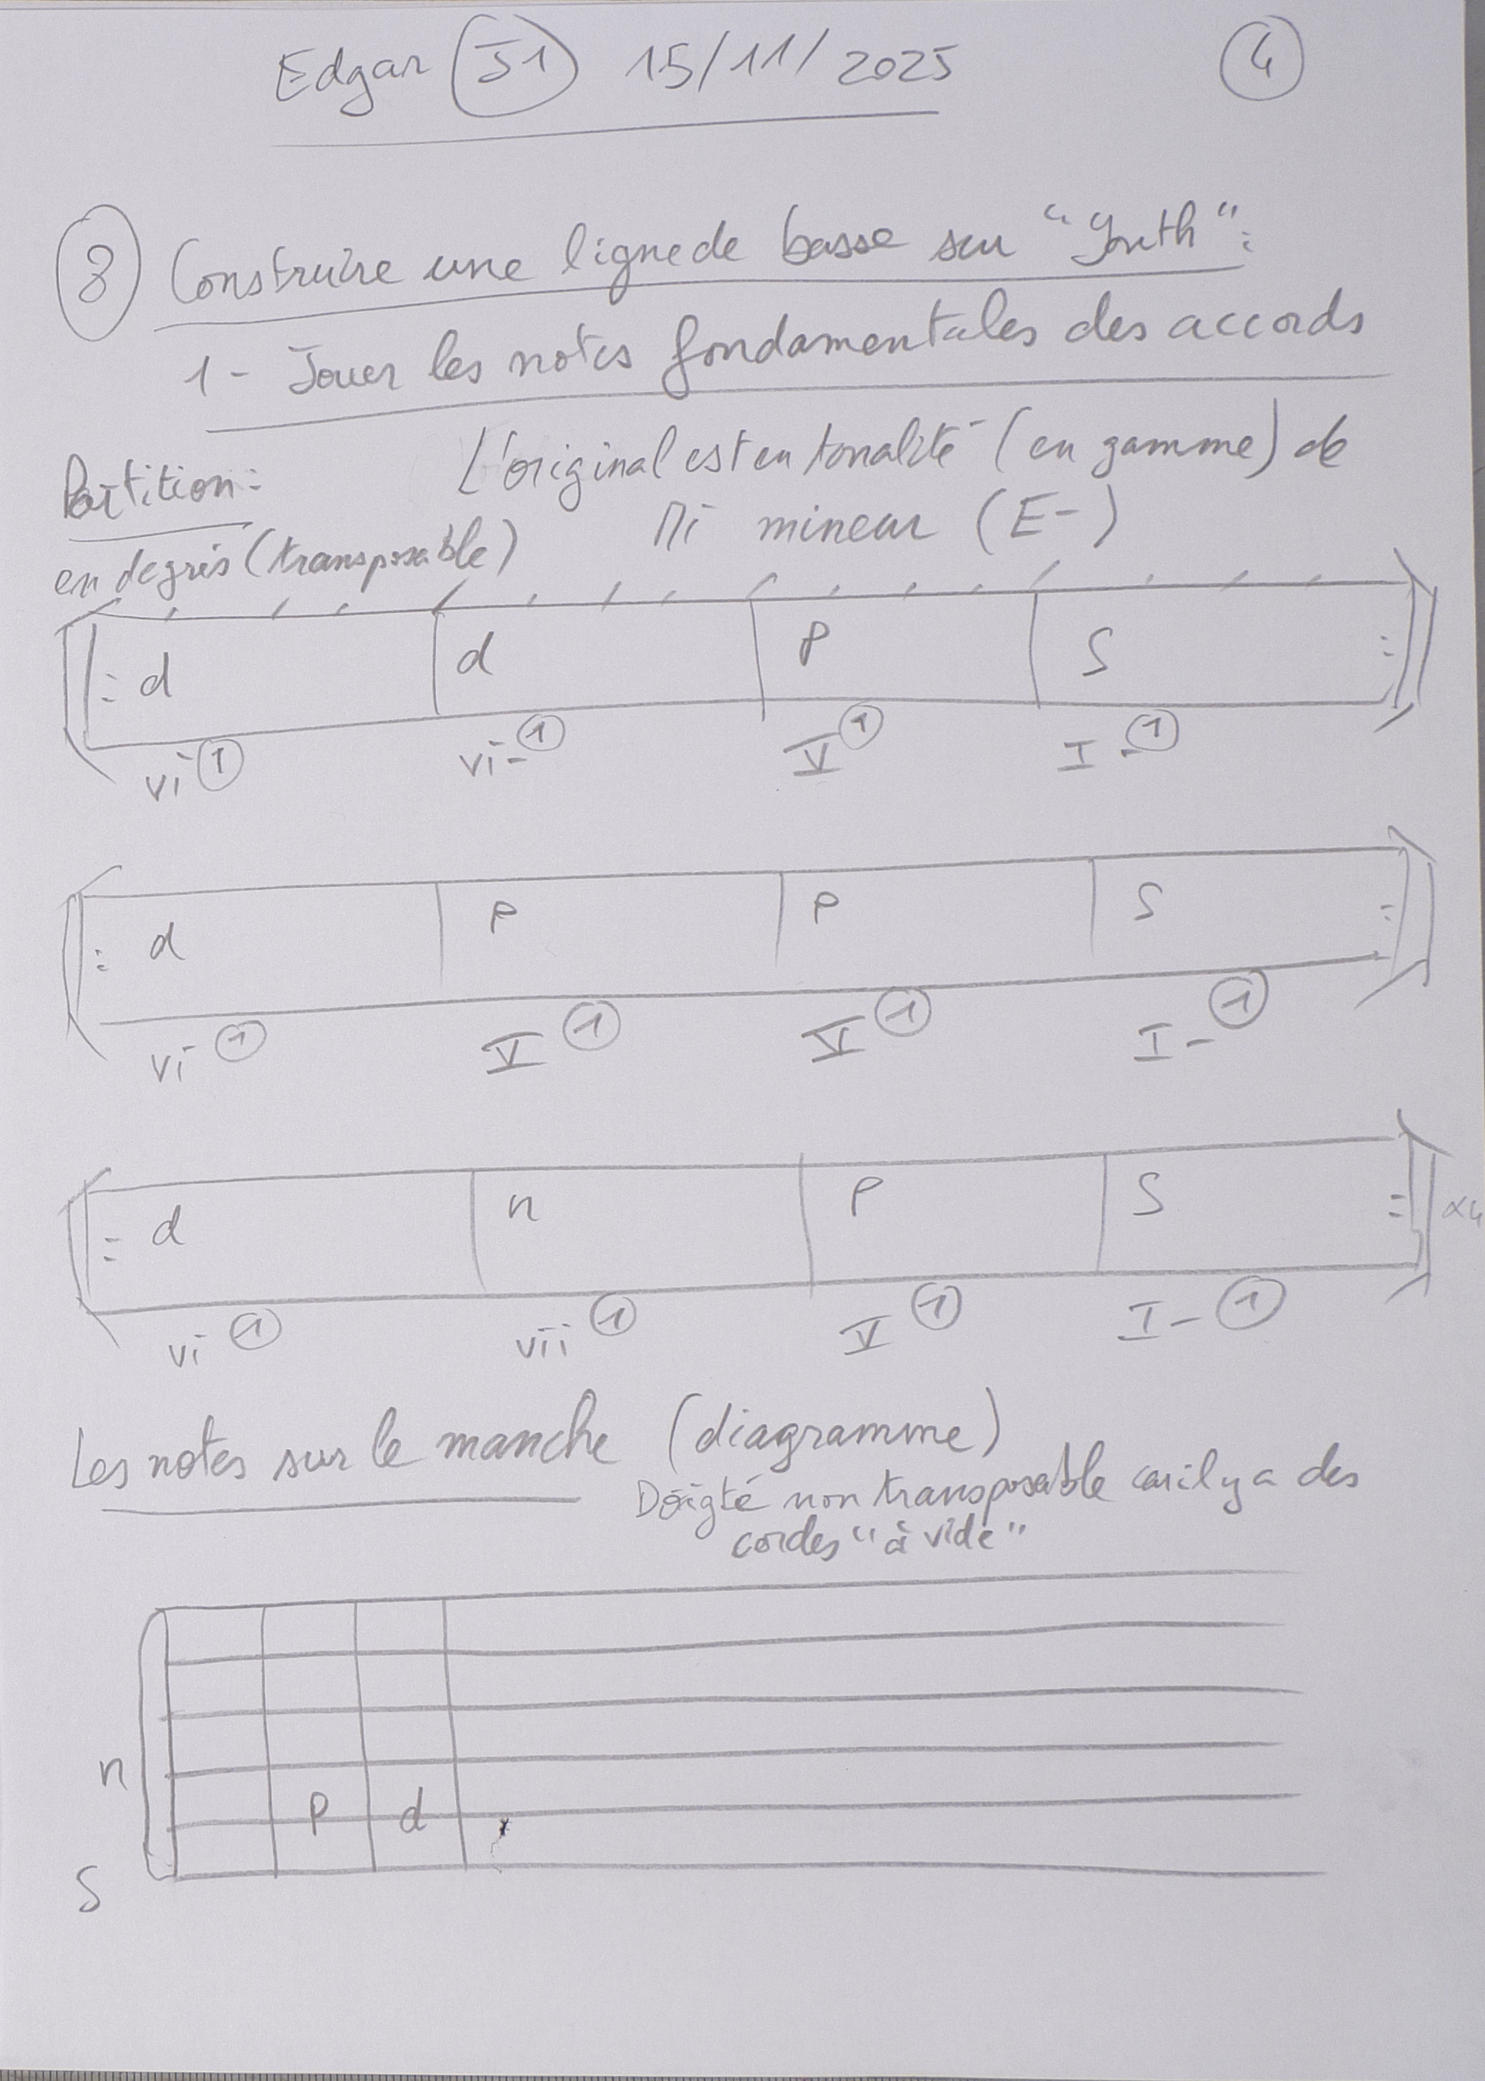 Edgar J1 15/11/2025 4
8 Construire une ligne de basse sur "Youth":
1- Jouer les notes fondamentales des accords
Partition: L'original est en tonalité (en gamme) de
Mi mineur (E-)
en degrés (transposable)
d d P S
vi 1 vi- 1 V 1 I- 1
d P P S
vi 1 V 1 V 1 I- 1
d n P S x4
vi 1 vii 1 V 1 I- 1
Les notes sur le manche (diagramme)
Doigté non transposable car il y a des
cordes "à vide"
n
P d
S